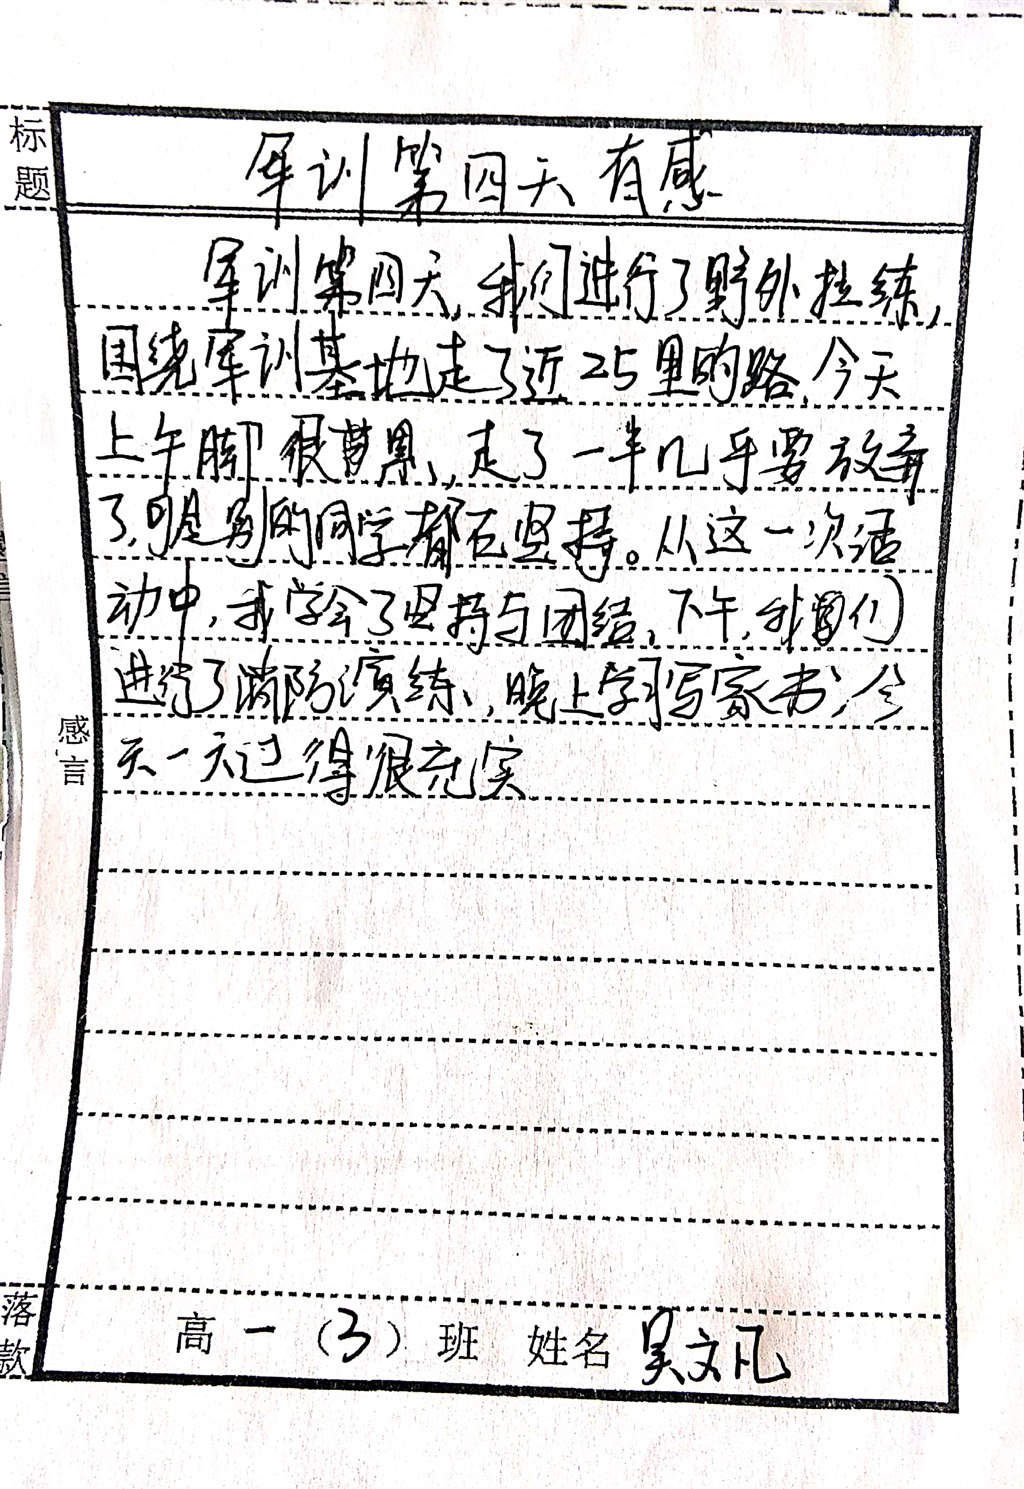 标题
军训第四天有感
军训第四天,我们进行了野外拉练,
围绕军训基地走了近25里的路,今天
上午脚很累,走了一半几乎要放弃
了,可是别的同学都在坚持。从这一次活
动中,我学会了坚持与团结,下午,我们
进行了消防演练,晚上学习写家书,今
天一天过得很充实
感言
落款
高一(3)班 姓名 吴文凡